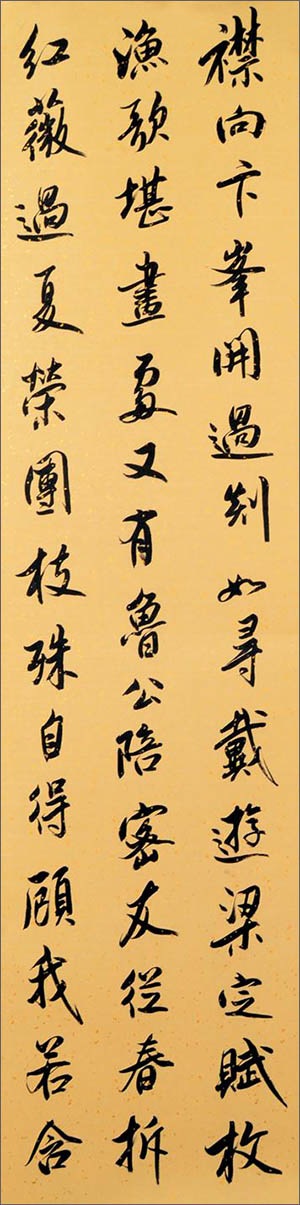 襟向卞峯開過剡如尋戴遊梁定賦枚
漁歌堪畫處又有魯公陪密友從春拆
紅薇過夏榮團枝殊自得顧我若含